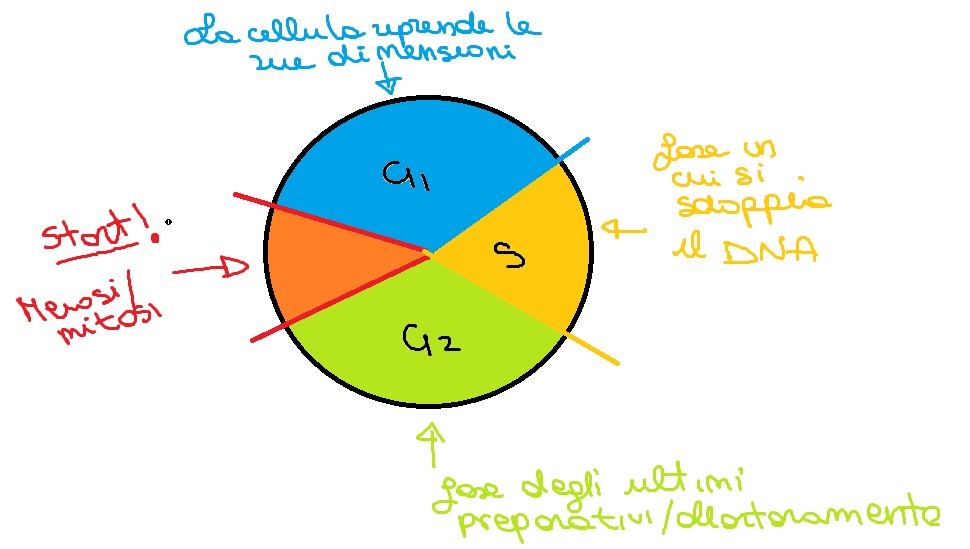 La cellula riprende le
sue dimensioni
G1
fase in
cui si
sdoppia
il DNA
S
Start!
Meiosi/
mitosi
G2
fase degli ultimi
preparativi/